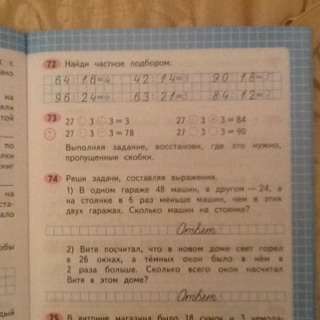 72 Найди частное подбором:
64:16=4 42:14=3 90:18=5
96:24=4 63:21=3 84:12=7
73 27 3 3 = 3 27 3 3 = 84
27 3 3 = 78 27 3 3 = 90
Выполняя задание, восстанови, где это нужно,
пропущенные скобки.
74 Реши задачи, составляя выражения.
1) В одном гараже 48 машин, в другом — 24, а
на стоянке в 6 раз меньше машин, чем в этих
двух гаражах. Сколько машин на стоянке?
Ответ
2) Витя посчитал, что в новом доме свет горел
в 26 окнах, а тёмных окон было в нём в
2 раза больше. Сколько всего окон насчитал
Витя в этом доме?
Ответ
75 В витрине магазина было 18 сумок и 3